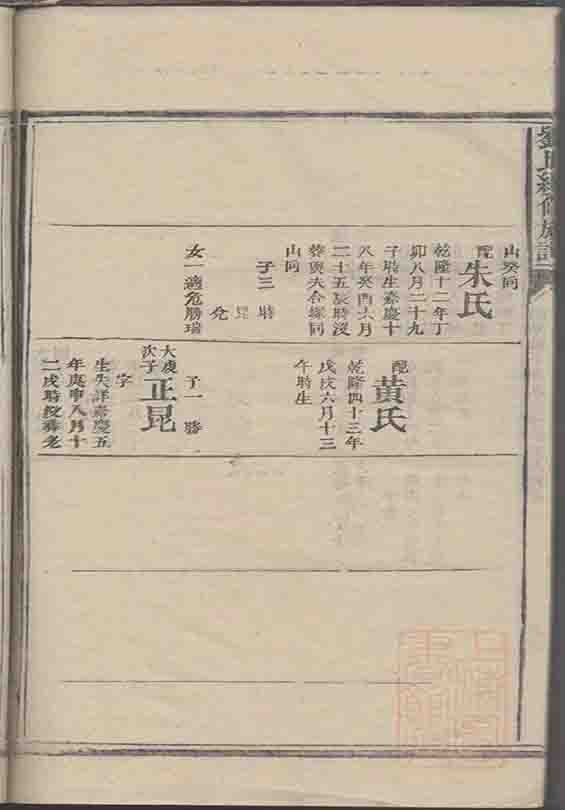 劉氏續修族譜
山癸向
配
朱氏
乾隆十二年丁
卯八月二十九
子時生嘉慶十
八年癸酉六月
二十五辰時沒
葬與夫合塚同
山向
子三 時
昆
允
女一適危勝瑞
配
黃氏
乾隆四十三年
戊戌六月十三
午時生
子一 勝
大
次子
正昆
字
生失詳嘉慶五
年庚申八月十
二戌時歿葬老